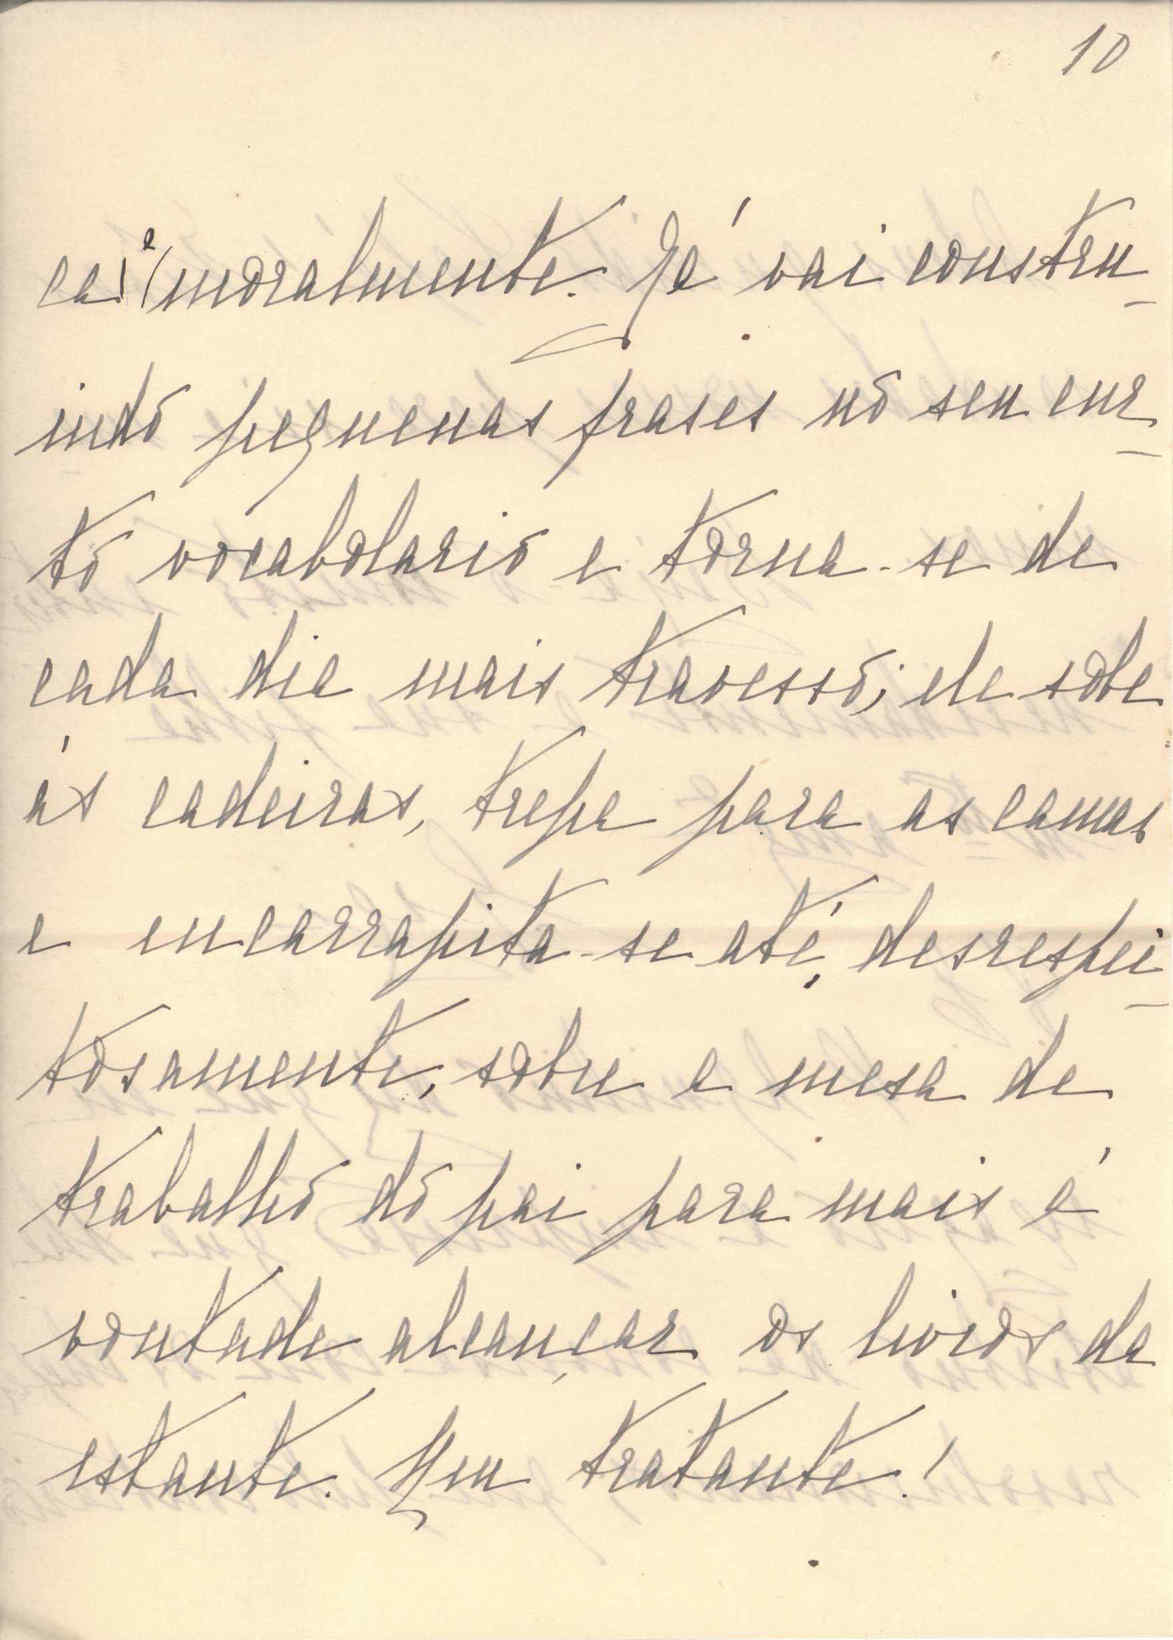 10
ca e moralmente. Já vai constru-
indo pequenas frases no seu cur-
to vocabolario e torna-se de
cada dia mais travesso; ele sobe
ás cadeiras, trepa para as camas
e encarrapita-se até, desrespei-
tosamente, sobre a mesa de
trabalho do pai para mais á
vontade alcançar os livros da
estante. Um tratante!